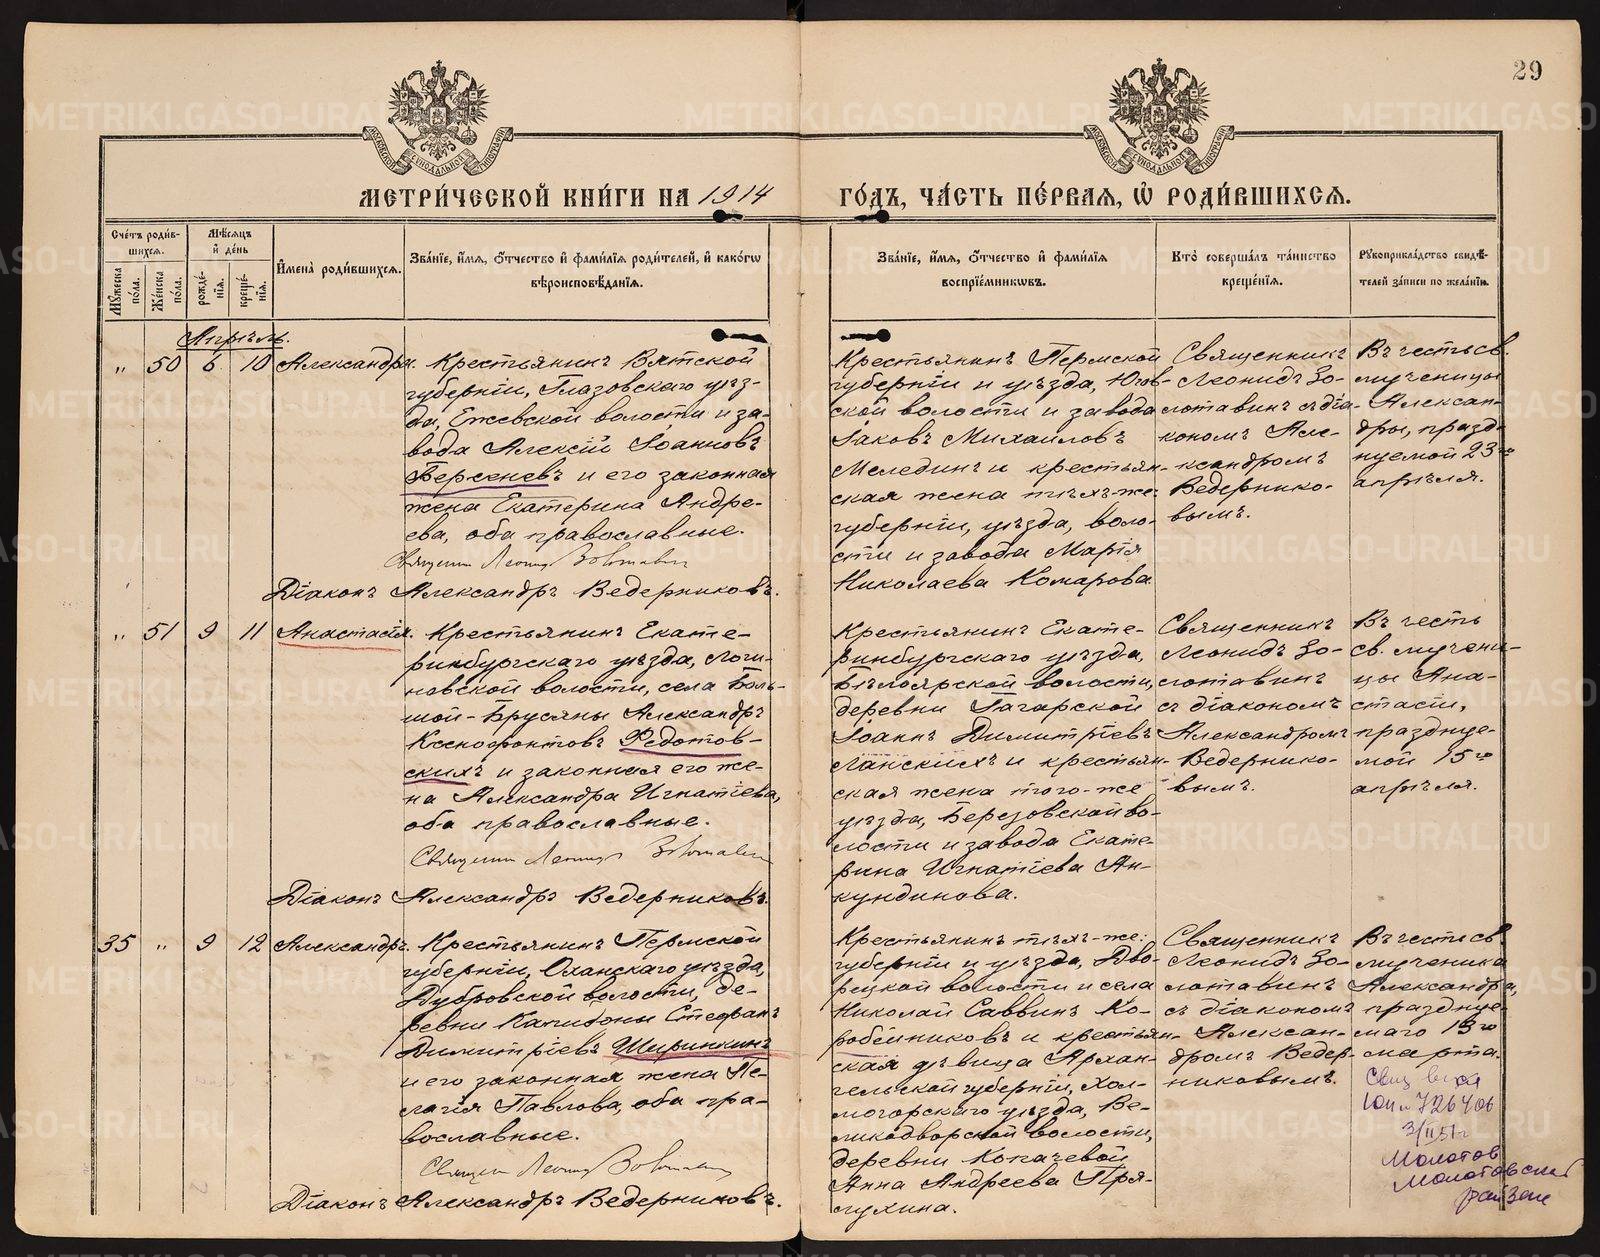 29
МЕТРИ́ЧЕСКОЙ КНИ́ГИ НА 1914 ГО́ДЪ, ЧА́СТЬ ПЕ́РВАЯ, Ѡ҆ РОДИ́ВШИХСЯ.
Сче́тъ роди́в-
шихся.
Му́жеска
по́ла.
Же́нска
по́ла.
Мѣ́сяцъ
и҆ де́нь
рожде́-
нія.
креще́-
нія.
И҆мена̀ роди́вшихся.
Зва́ніе, и҆́мя, ѻ҆́тчество и҆ фами́лія роди́телей, и҆ како́гѡ
вѣроисповѣ́данія.
Зва́ніе, и҆́мя, ѻ҆́тчество и҆ фами́лія
воспріе́мникѡвъ.
Кто̀ соверша́лъ та́инство
креще́нія.
Рꙋкоприкла́дство свидѣ́-
телей за́писи по жела́нію.
Апрѣль.
„ 50 6 10 Александра.
Крестьянинъ Вятской
губерніи, Глазовскаго уѣз-
да, Ежевской волости и за-
вода Алексій Іоанновъ
Берсеневъ и его законная
жена Екатерина Андре-
ева, оба православные.
Священникъ Леонидъ Золотавинъ
Діаконъ Александръ Ведерниковъ.
Крестьянинъ Пермской
губерніи и уѣзда, Югов-
ской волости и завода
Іаковъ Михаиловъ
Мелединъ и крестьян-
ская жена тѣхъ-же
губерніи, уѣзда, воло-
сти и завода Марія
Николаева Комарова
Священникъ
Леонидъ Зо-
лотавинъ съ діа-
кономъ Але-
ксандромъ
Ведернико-
вымъ.
Въ честь св.
мученицы
Алексан-
дры, празд-
нуемой 23го
апрѣля.
„ 51 9 11 Анастасія.
Крестьянинъ Екате-
ринбургскаго уѣзда, Логи-
новской волости, села Боль-
шой-Брусяны Александръ
Ксенофонтовъ Федотов-
скихъ и законная его же-
на Александра Игнатіева,
оба православные.
Священникъ Леонидъ Золотавинъ
Діаконъ Александръ Ведерниковъ.
Крестьянинъ Екате-
ринбургскаго уѣзда,
Бѣлоярской волости,
деревни Гагарской
Іоаннъ Димитріевъ
Ланскихъ и крестьян-
ская жена того-же
уѣзда, Березовской во-
лости и завода Екате-
рина Игнатіева Ан-
кундинова.
Священникъ
Леонидъ Зо-
лотавинъ
съ діакономъ
Александромъ
Ведернико-
вымъ.
Въ честь
св. мучени-
цы Ана-
стасіи,
празднуе-
мой 15го
апрѣля.
35 „ 9 12 Александръ.
Крестьянинъ Пермской
губерніи, Оханскаго уѣзда,
Дубровской волости, де-
ревни Капидоны Стефанъ
Димитріевъ Ширинкинъ
и его законная жена Пе-
лагія Павлова, оба пра-
вославные.
Священникъ Леонидъ Золотавинъ
Діаконъ Александръ Ведерниковъ.
Крестьянинъ тѣхъ-же:
губерніи и уѣзда, Дво-
рецкой волости и села
Николай Саввинъ Ко-
робейниковъ и крестьян-
ская дѣвица Архан-
гельской губерніи, Хол-
могорскаго уѣзда, Ве-
ликодворской волости,
деревни Копачевой
Анна Андреева Пря-
лухина.
Священникъ
Леонидъ Зо-
лотавинъ
съ діакономъ
Алексан-
дромъ Ведер-
никовымъ.
Въ честь св.
мученика
Александра,
празднуе-
маго 13го
марта.
726406
3/II 51 г
Молотов
Молотовский
райзагс
METRIKI.GASO-URAL.RU